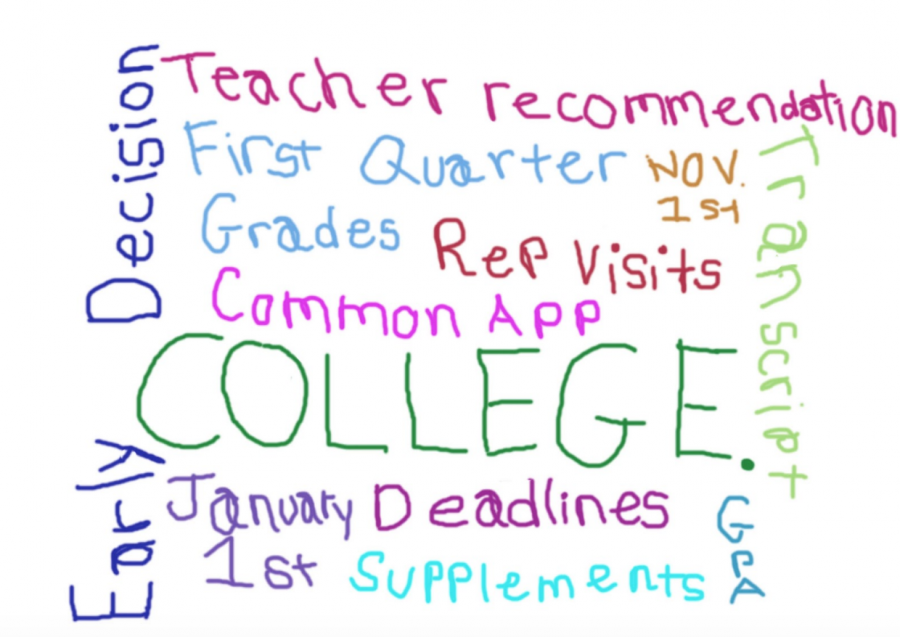 Teacher recommendation
First Quarter
Grades
NOV.
1st
Rep Visits
Common App
Transcript
COLLEGE.
Early Decision
January
1st
Deadlines
Supplements
GPA